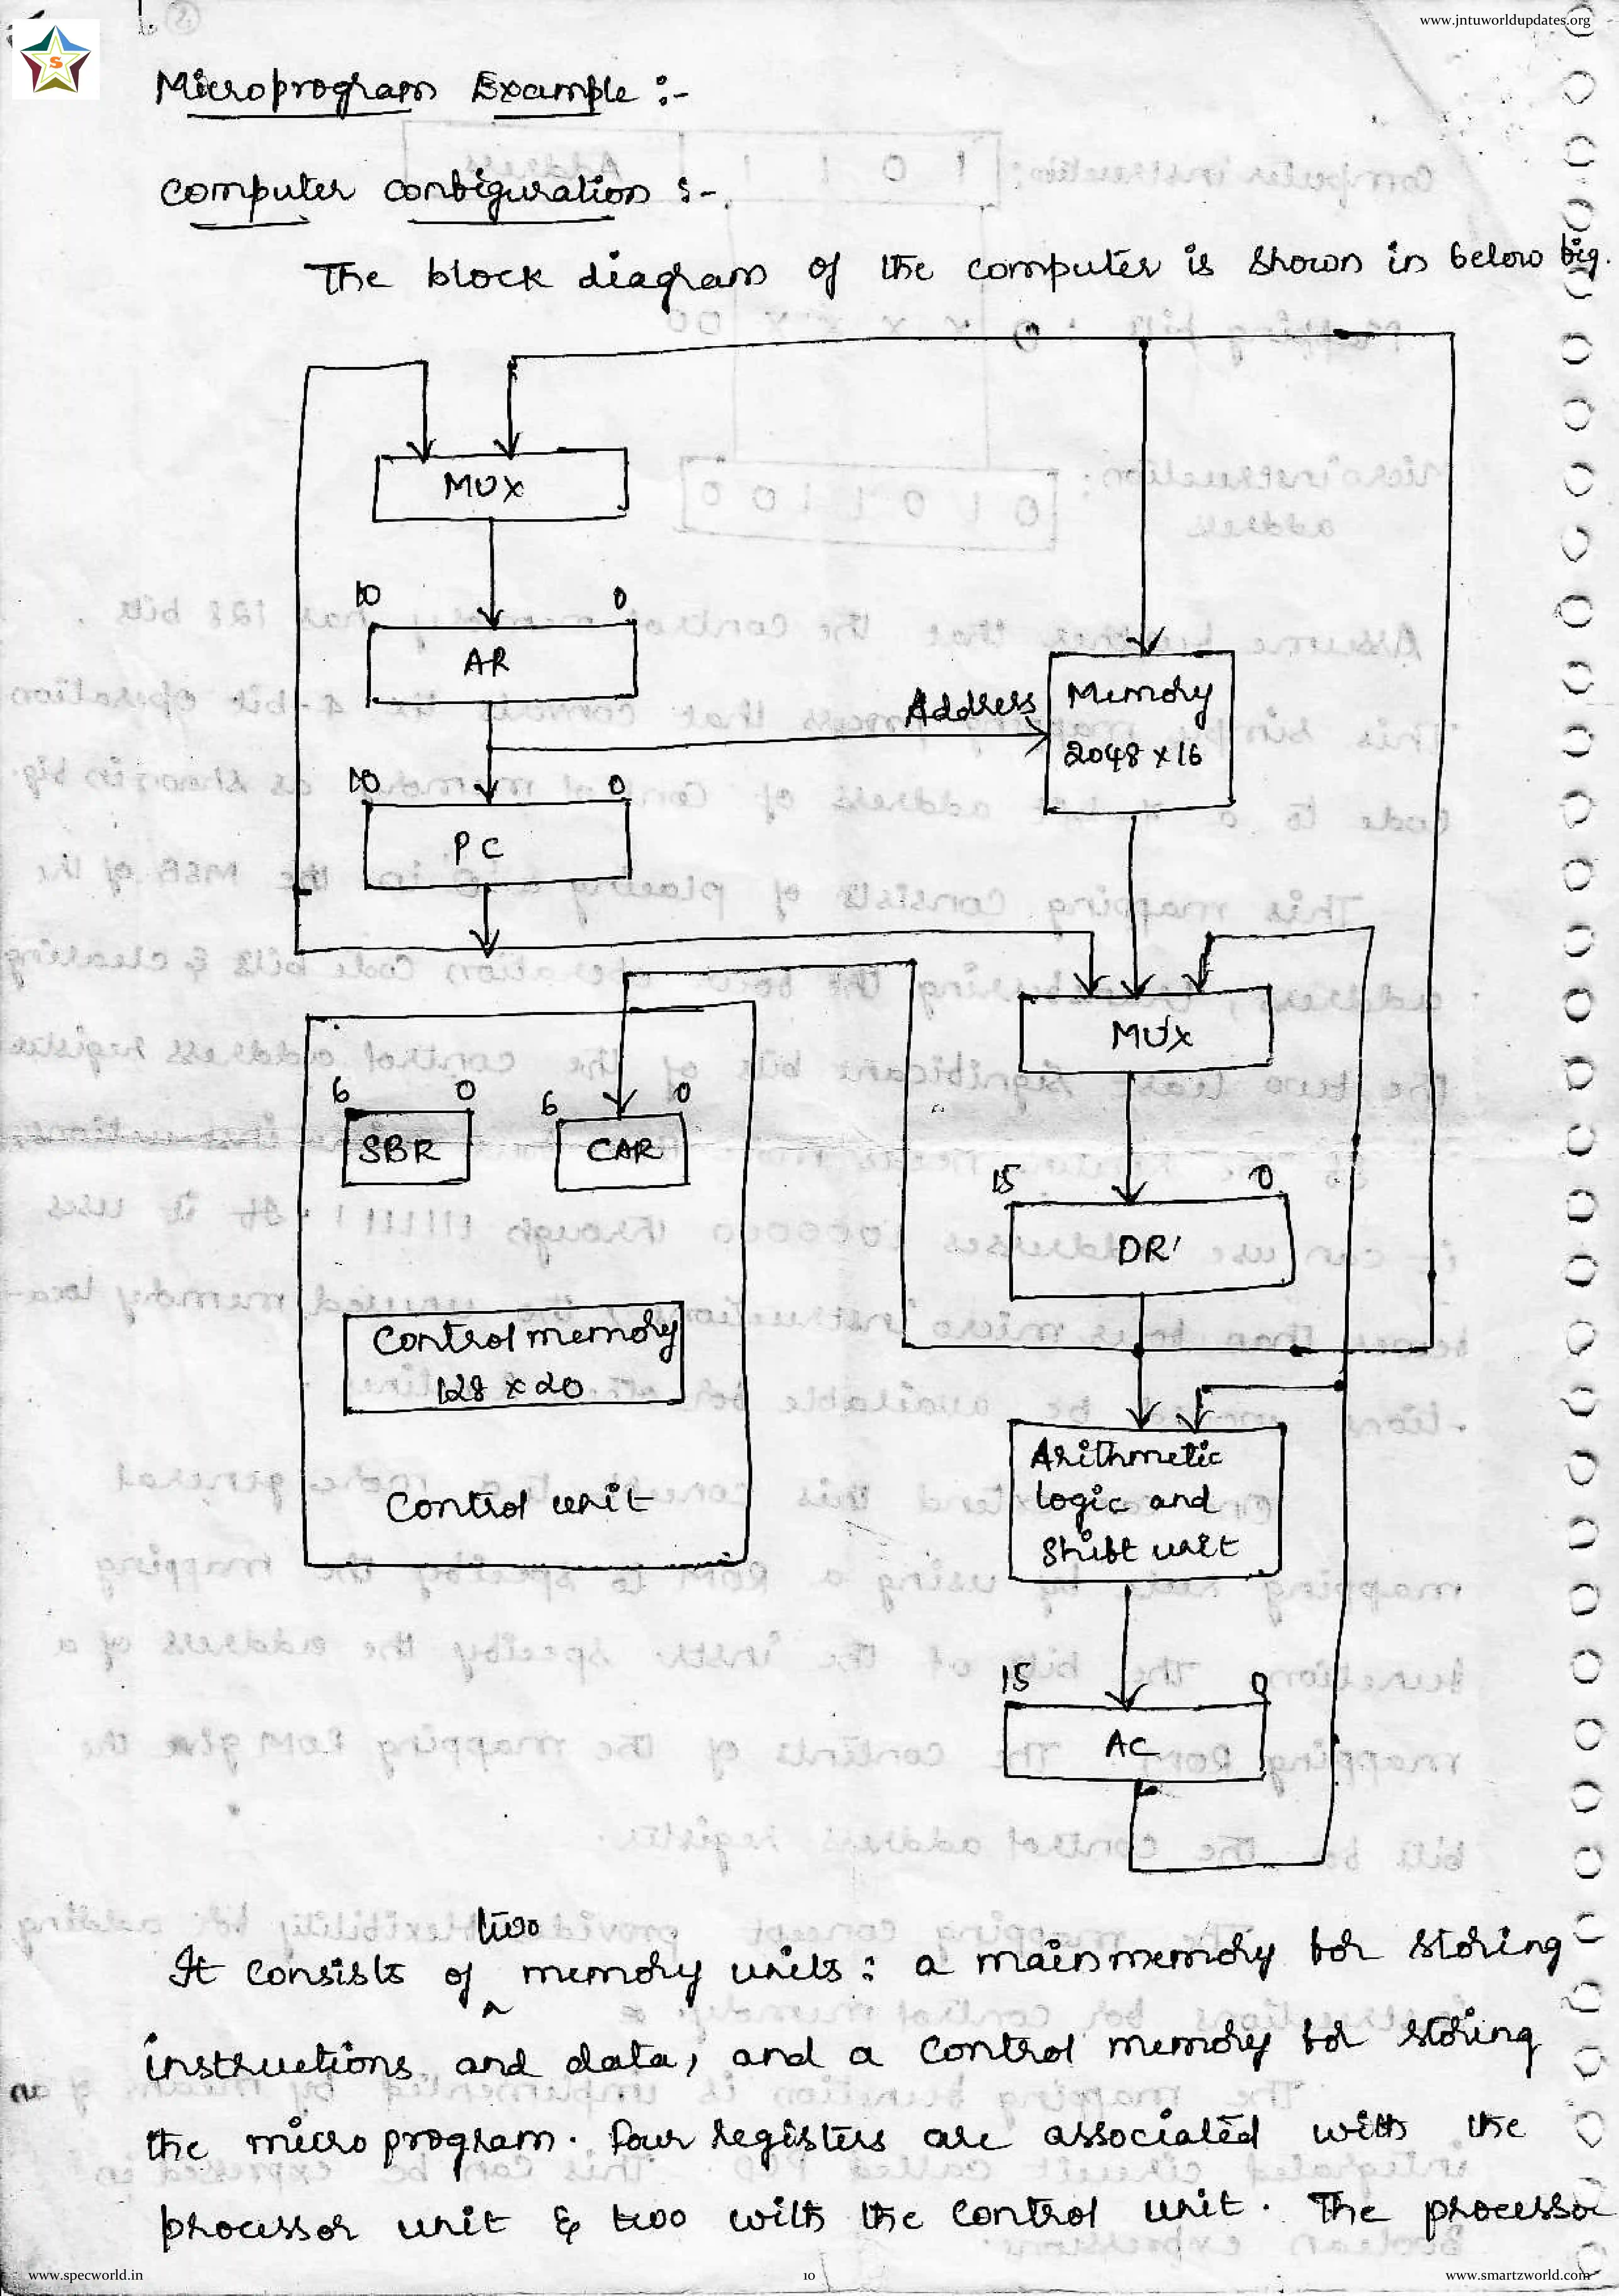 www.jntuworldupdates.org
S
Microprogram Example :-
Computer Configuration :-
The block diagram of the computer is shown in below fig.
MUX
10 0
AR
Address
Memory
2048 x 16
10 0
PC
MUX
6 0
SBR
6 0
CAR
15 0
DR
Control memory
128 x 20
Control unit
Arithmetic
logic and
Shift unit
15 0
AC
two
It consists of ^ memory units : a main memory for storing
instructions and data, and a control memory for storing
the micro program. Four registers are associated with the
processor unit & two with the control unit. The processor
www.specworld.in
10
www.smartzworld.com